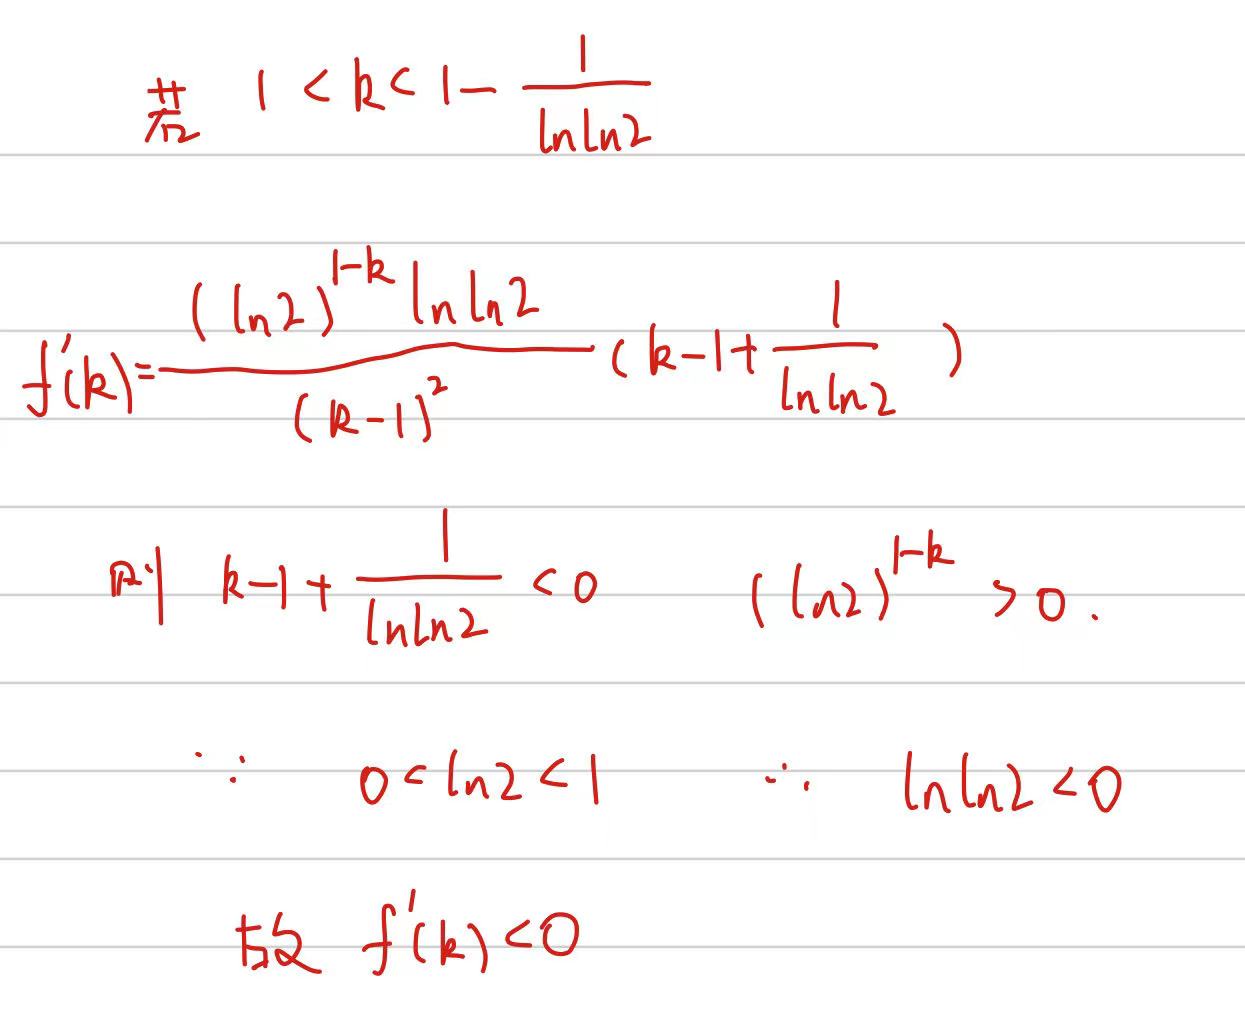 若 1 < k < 1 - \frac{1}{\ln\ln 2}
f'(k) = \frac{(\ln 2)^{1-k} \ln\ln 2}{(k-1)^2} (k-1+\frac{1}{\ln\ln 2})
则 k-1+\frac{1}{\ln\ln 2} < 0 (\ln 2)^{1-k} > 0.
∵ 0 < \ln 2 < 1 ∴ \ln\ln 2 < 0
故 f'(k) < 0